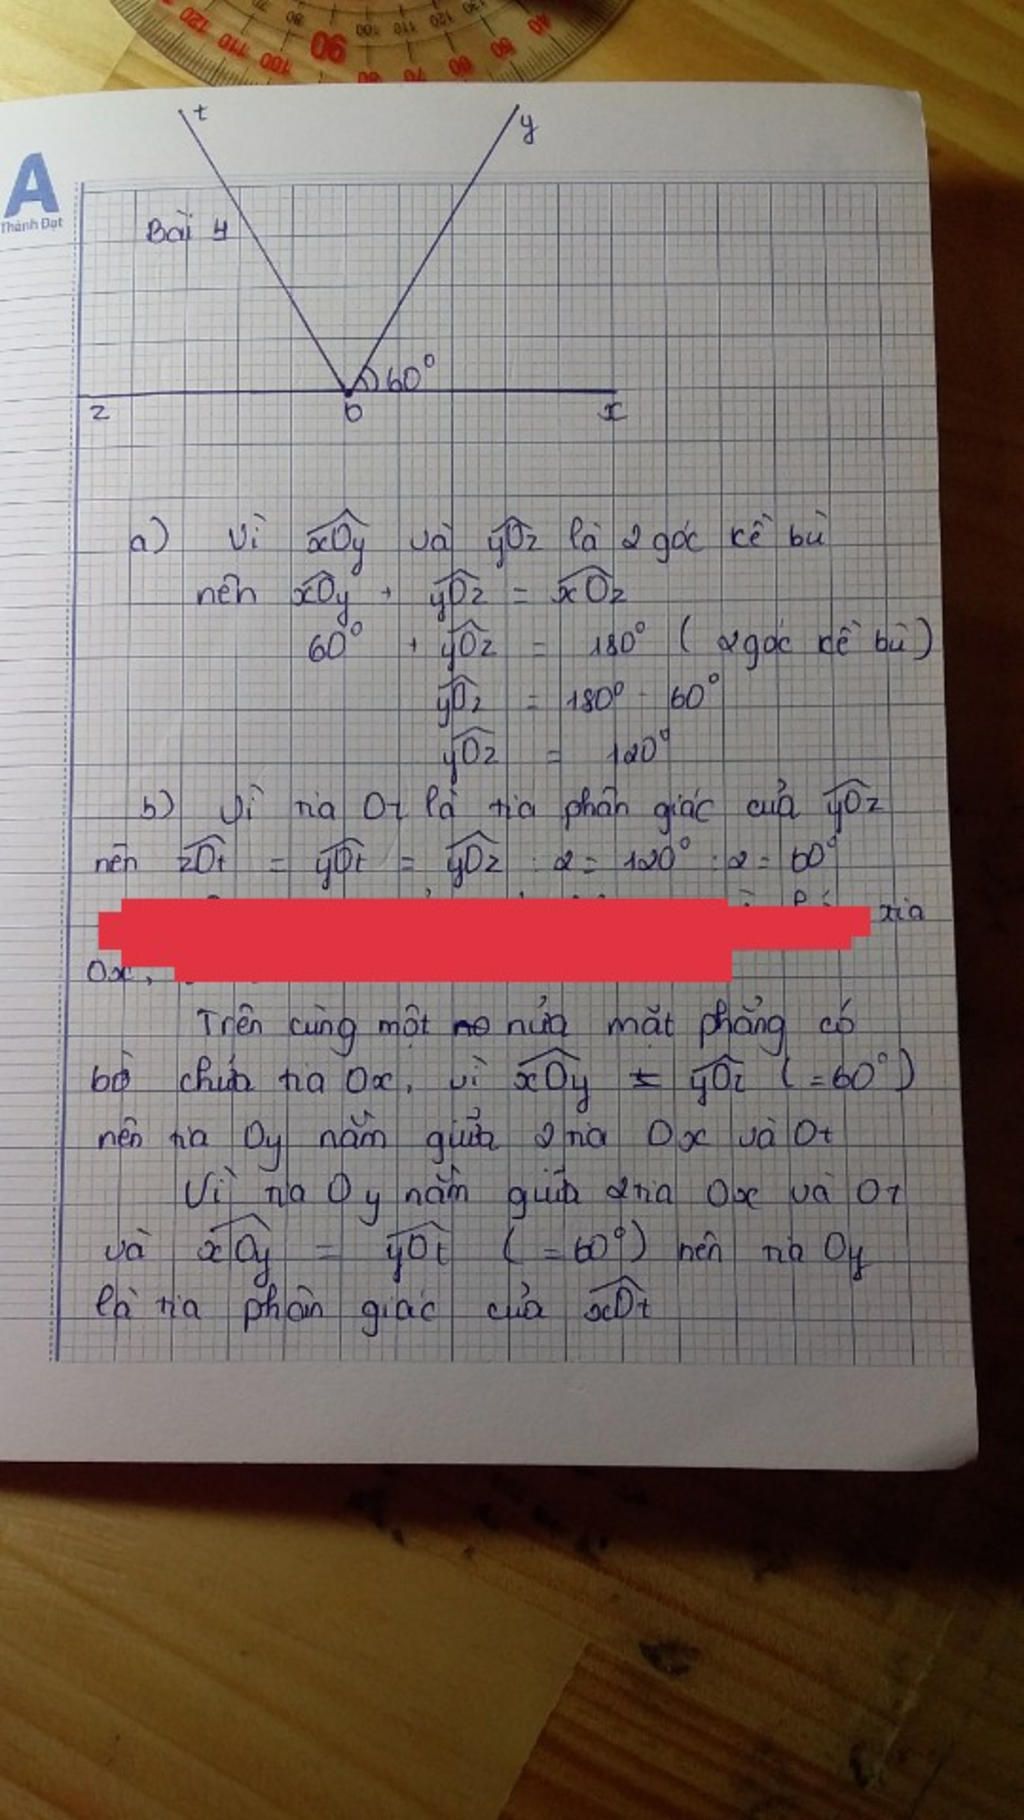 120 110 100 90 80 70 60 50 40
A
Thành Đạt
t
y
Bài 4
60°
z
O
x
a) Vì xOy và yOz là 2 góc kề bù
nên xOy + yOz = xOz
60° + yOz = 180° ( 2 góc kề bù )
yOz = 180° - 60°
yOz = 120°
b) Vì tia Ot là tia phân giác của yOz
nên zOt = yOt = yOz : 2 = 120° : 2 = 60°
tia
Ox,
Trên cùng một nửa mặt phẳng có
bờ chứa tia Ox, vì xOy = yOt ( = 60° )
nên tia Oy nằm giữa 2 tia Ox và Ot
Vì tia Oy nằm giữa 2 tia Ox và Ot
và xOy = yOt ( = 60° ) nên tia Oy
là tia phân giác của xOt